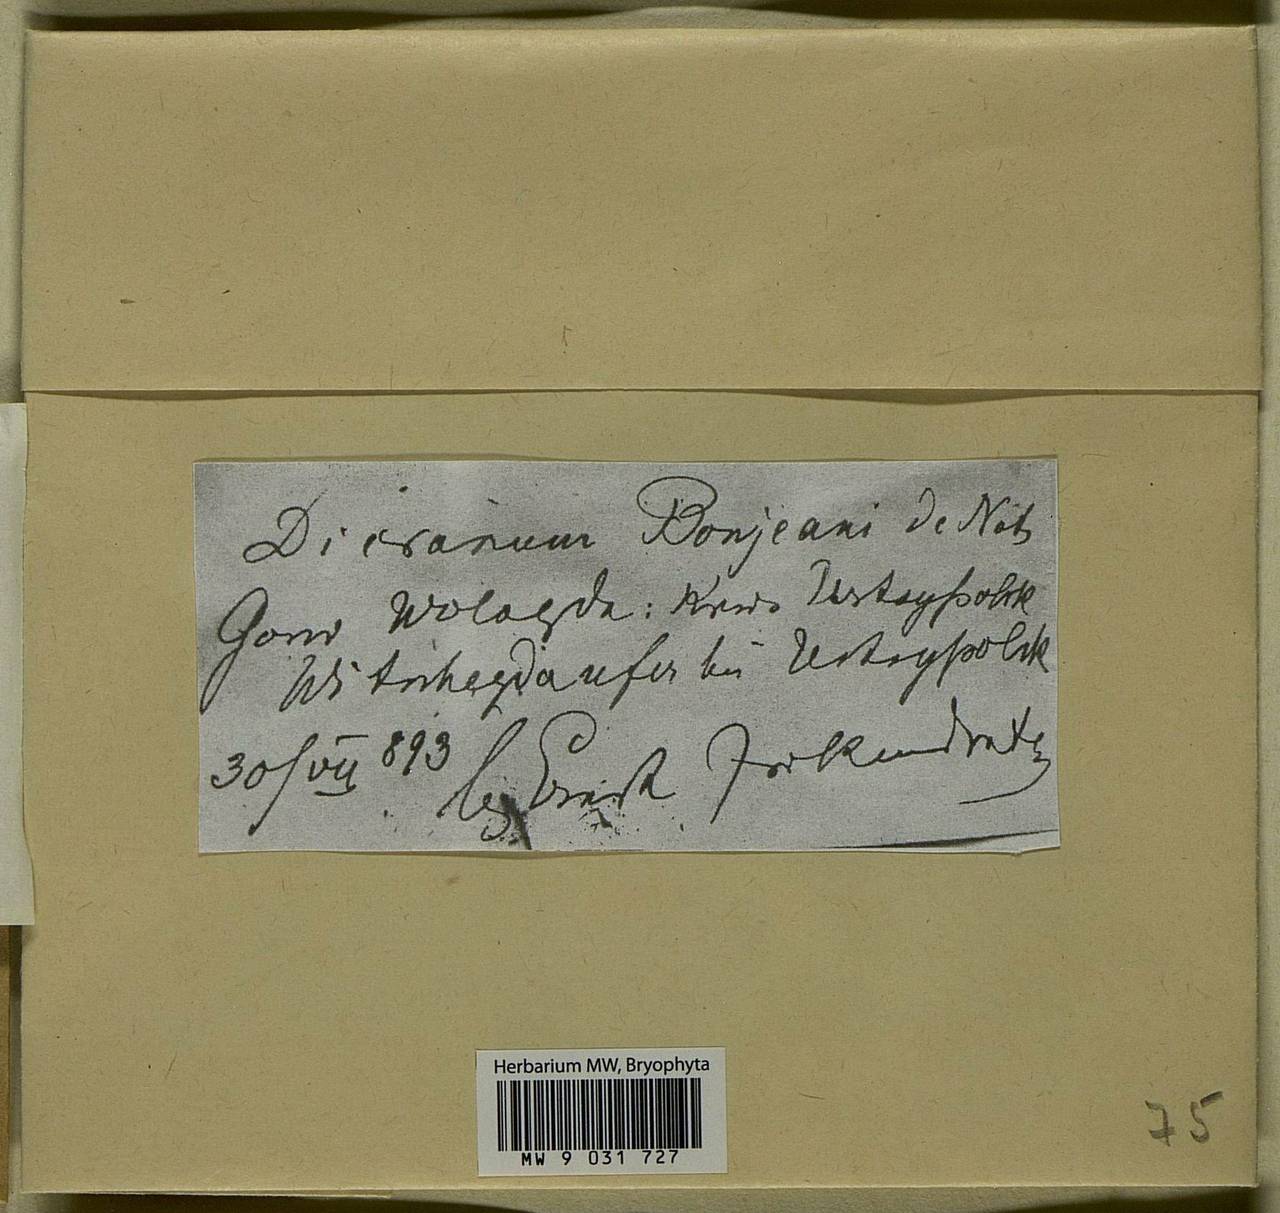 Dicranum Bonjeani de Not.
Gouv Wologda: Kreis Ustsyssolsk
Witschegdaufer bei Ustsyssolsk
30/VII 893 leg Ernst
Herbarium MW, Bryophyta
MW 9 031 727
75